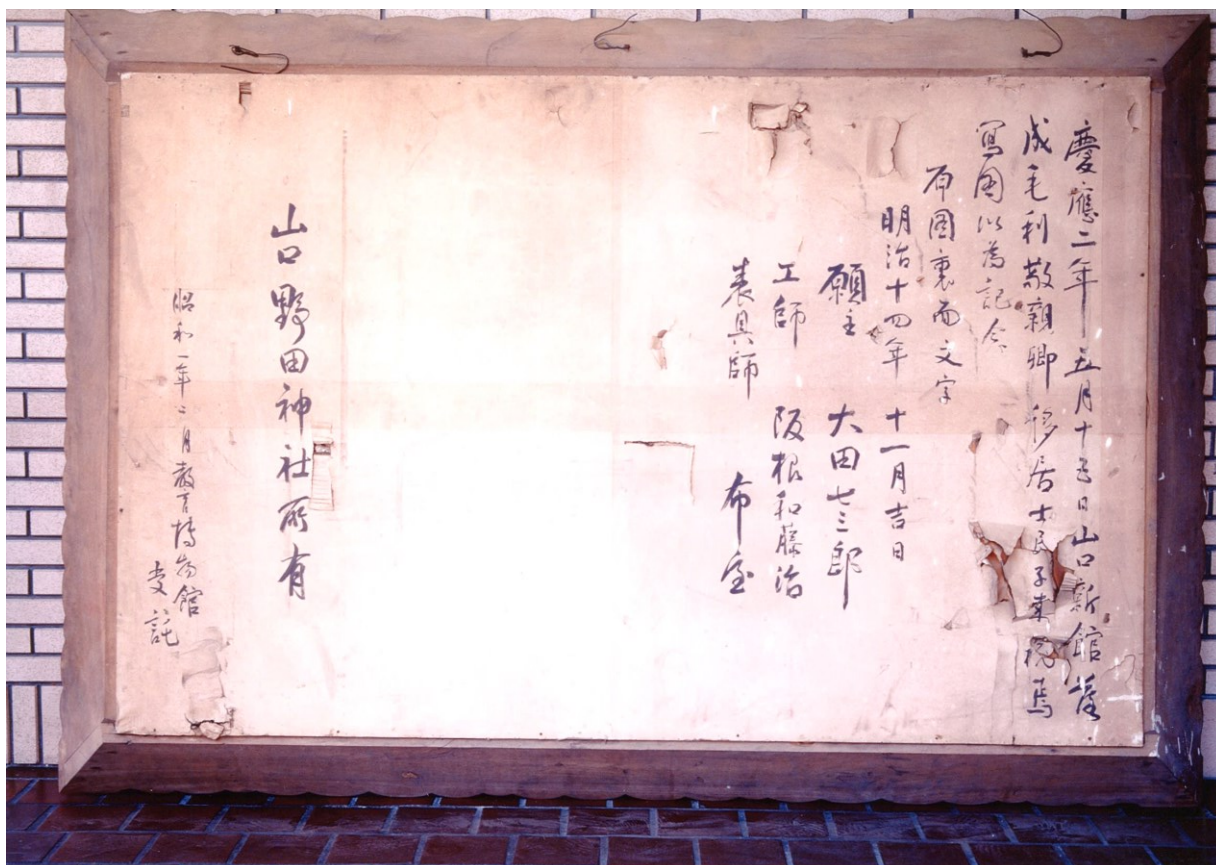 慶應二年五月十五日山口新館落
成毛利敬親卿移居士民子来祝焉
寫圖以為記念
右圖裏面文字
明治十四年十一月吉日
願主 大田七三郎
工師 阪根和藤治
表具師 布屋
山口野田神社所有
昭和一年二月教育博物館
受託